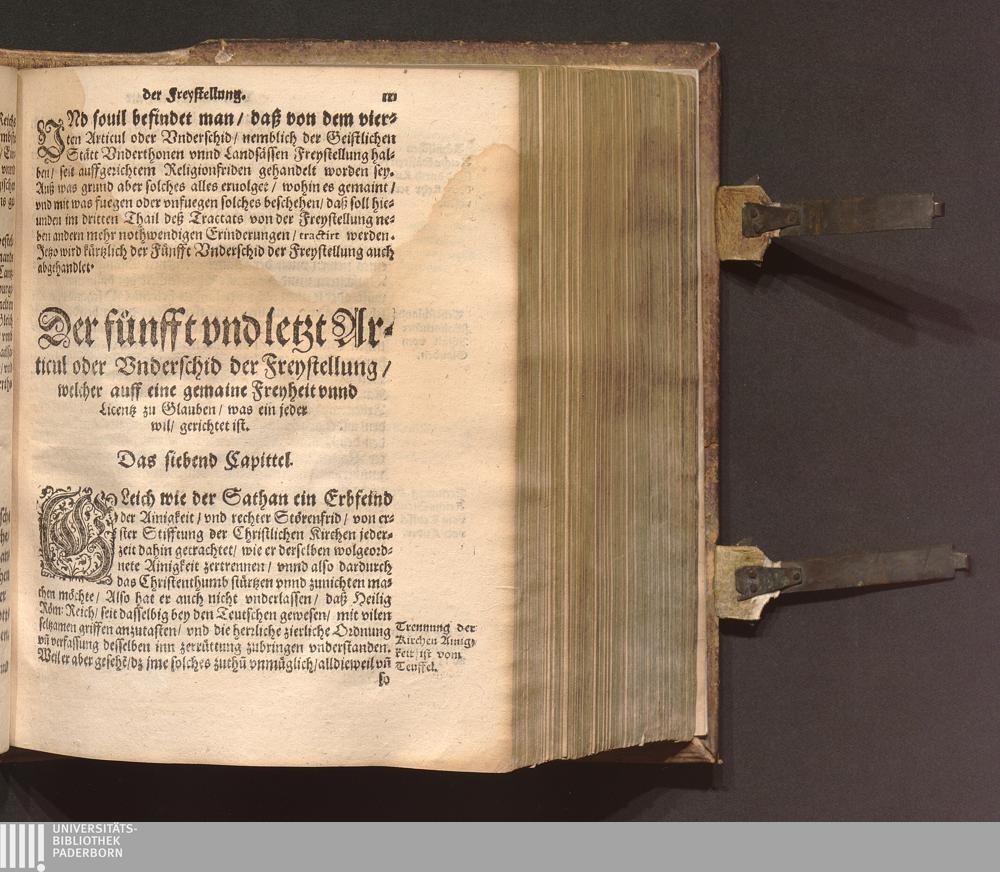 der Freystellung.
VNd souil befindet man / daß von dem vier-
ten Articul oder Vnderschid / nemblich der Geistlichen
Stätt Vnderthonen vnnd Landsässen Freystellung hal-
ben / seit auffgerichtem Religionfriden gehandelt worden sey.
Auß was grund aber solches alles eruolget / wohin es gemaint /
vnd mit was fuegen oder vnfuegen solches beschehen / daß soll hie-
unden im dritten Thail deß Tractats von der Freystellung ne-
ben andern mehr nothwendigen Erinderungen / tractirt werden.
Jetzo wird kürtzlich der Fünfft Vnderschid der Freystellung auch
abgehandlet.
Der fünfft vnd letzt Ar-
ticul oder Vnderschid der Freystellung /
welcher auff eine gemaine Freyheit vnnd
Licentz zu Glauben / was ein jeder
wil / gerichtet ist.
Das siebend Capittel.
GLeich wie der Sathan ein Erbfeind
der Ainigkeit / vnd rechter Störenfrid / von er-
ster Stifftung der Christlichen Kirchen jeder-
zeit dahin getrachtet / wie er derselben wolgeord-
nete Ainigkeit zertrennen / vnnd also dardurch
das Christenthumb stürtzen vnnd zunichten ma-
chen möchte / Also hat er auch nicht vnderlassen / daß Heilig
Röm: Reich / seit dasselbig bey den Teutschen gewesen / mit vilen
seltzamen griffen anzutasten / vnd die herzliche zierliche Ordnung
vñ verfassung desselben inn zerrüttung zubringen vnderstanden.
Weil er aber gesehẽ / dz jme solches zuthũ vnmüglich / alldieweil vñ
so
Trennung der
Kirchen Ainig-
keit / ist vom
Teuffel.
UNIVERSITÄTS-
BIBLIOTHEK
PADERBORN